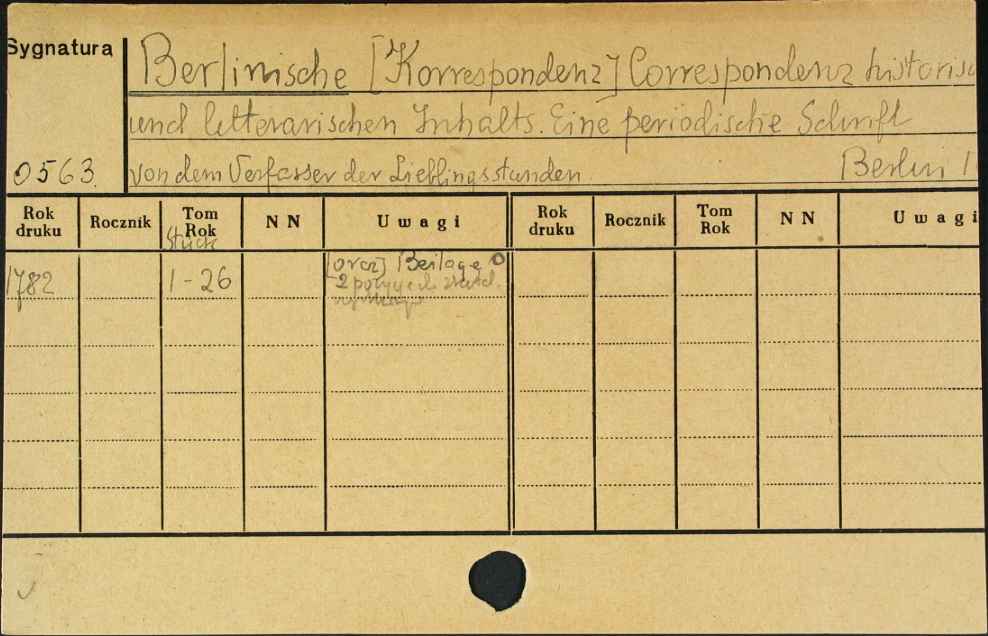 Sygnatura
Berlinische [Korrespondenz] Correspondenz historisc
und litterarischen Inhalts. Eine periodische Schrift
0563. von dem Verfasser der Lieblingsstunden. Berlin 1
Rok druku Rocznik Tom Rok Stück NN Uwagi Rok druku Rocznik Tom Rok NN Uwagi
1782 1-26 [oraz] Beilage
2